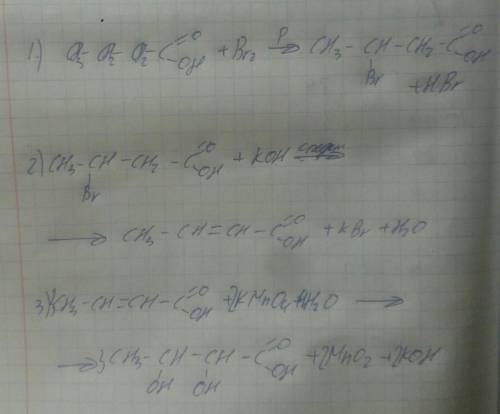 1) CH3 CH2 CH2 C=O OH + Br2 →P CH3 – CH – CH2 – C=O OH
Br + HBr
2) CH3 – CH – CH2 – C=O OH + KOH спирт
Br
→ CH3 – CH = CH – C=O OH + KBr + H2O
3) 3CH3 – CH = CH – C=O OH + 2KMnO4 + 4H2O →
→ 3 CH3 – CH – CH – C=O OH + 2MnO2 + 2KOH
OH OH